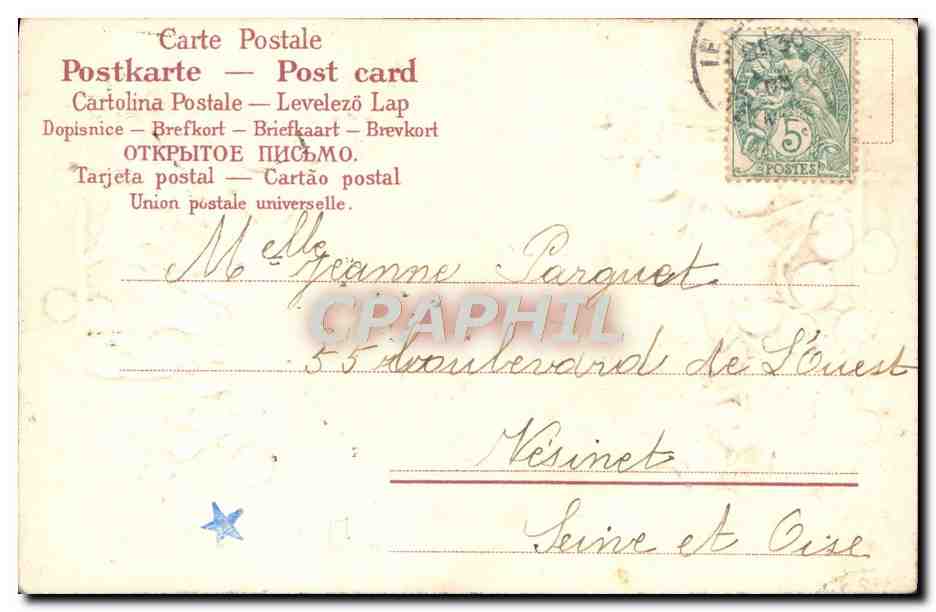 Carte Postale
Postkarte — Post card
Cartolina Postale — Levelező Lap
Dopisnice — Brefkort — Briefkaart — Brevkort
ОТКРЫТОЕ ПИСЬМО.
Tarjeta postal — Cartão postal
Union postale universelle.
5c
POSTES
Melle Jeanne Parquet
CPAPHIL
55 boulevard de L'Ouest
Vésinet
Seine et Oise